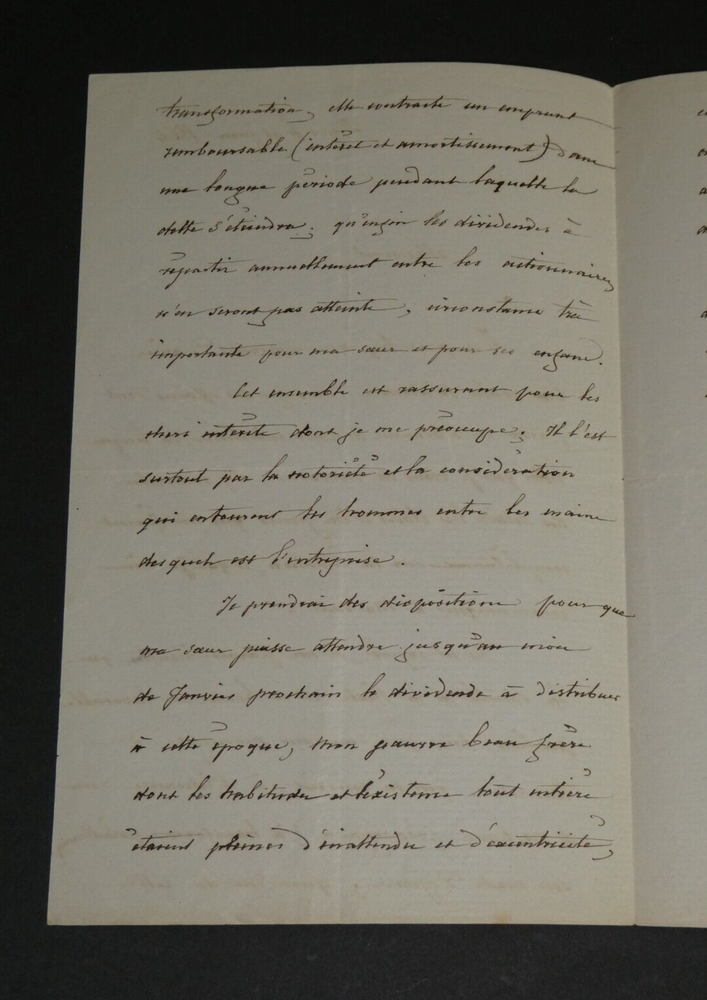 transformation, elle contracte un emprunt
remboursable (intérêt et amortissement) dans
une longue période pendant laquelle la
dette s'éteindra; qu'enfin les dividendes à
répartir annuellement entre les actionnaires
n'en seront pas atteints, circonstance très
importante pour ma sœur et pour ses enfans.
Cet ensemble est rassurant pour les
chers intérêts dont je me préoccupe; Il l'est
surtout par la notoriété et la considération
qui entourent les hommes entre les mains
desquels est l'entreprise.
Je prendrai des dispositions pour que
ma sœur puisse attendre jusqu'au mois
de Janvier prochain le dividende à distribuer
à cette époque, Mon pauvre beau frère
dont les habitudes et l'existence tout entière
étaient pleines d'inattendu et d'excentricité,